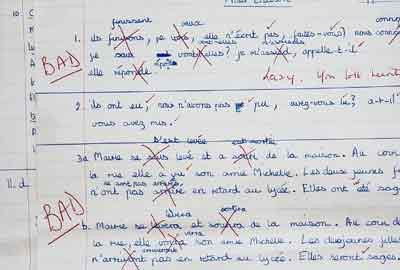 finissent veux
1. ils finissons, je vois, elle n'écrit pas, faites-vous? nous
je sais vont-elles? je m'assied, appelle-t-il
BAD
elle réponde
Lazy.
2. ils ont eu, nous n'avons pas pu, avez-vous lu? a-t-il
vous avez mis.
s'est levée est sortie
3a Marie se suis levé et a sorti de la maison. Au cour
la rue elle a vu son amie Michelle. Les deux jeunes
ne sont pas arrivés
n'ont pas arrivé en retard au lycée. Elles ont été sage
11. d.
BAD
lèvera sortira
b. Marie se levera et sortira de la maison. Au cour de
verra
la rue, elle voira son amie Michelle. Les deux jeunes filles
n'arrivont pas en retard au lycée. Elles seront sages.